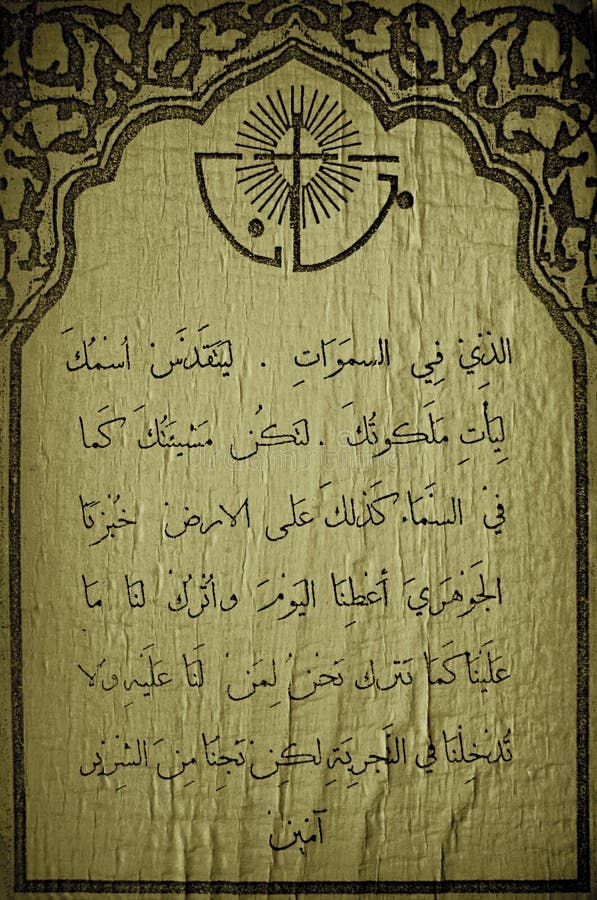 الذِي فِي السموَاتِ . ليَتَقَدَسَ اُسمُكَ
لِيَأتِ مَلَكوتُكَ . لتَكُن مَشيئَتُكَ كَما
في السَمَاء كَذلكَ عَلى الارض خُبْزنَا
الجَوْهَرِيَ أعْطِنَا اليَوْمَ وأتْرُكْ لنَا مَا
عَلَينَا كمَا نَترك نَحْنُ لِمَنْ لَنَا عَلَيْهِ وَلا
تُدْخِلْنَا في التَجرِبَةِ لكِن نَجِنَا مِنَ الشِرير
آمين